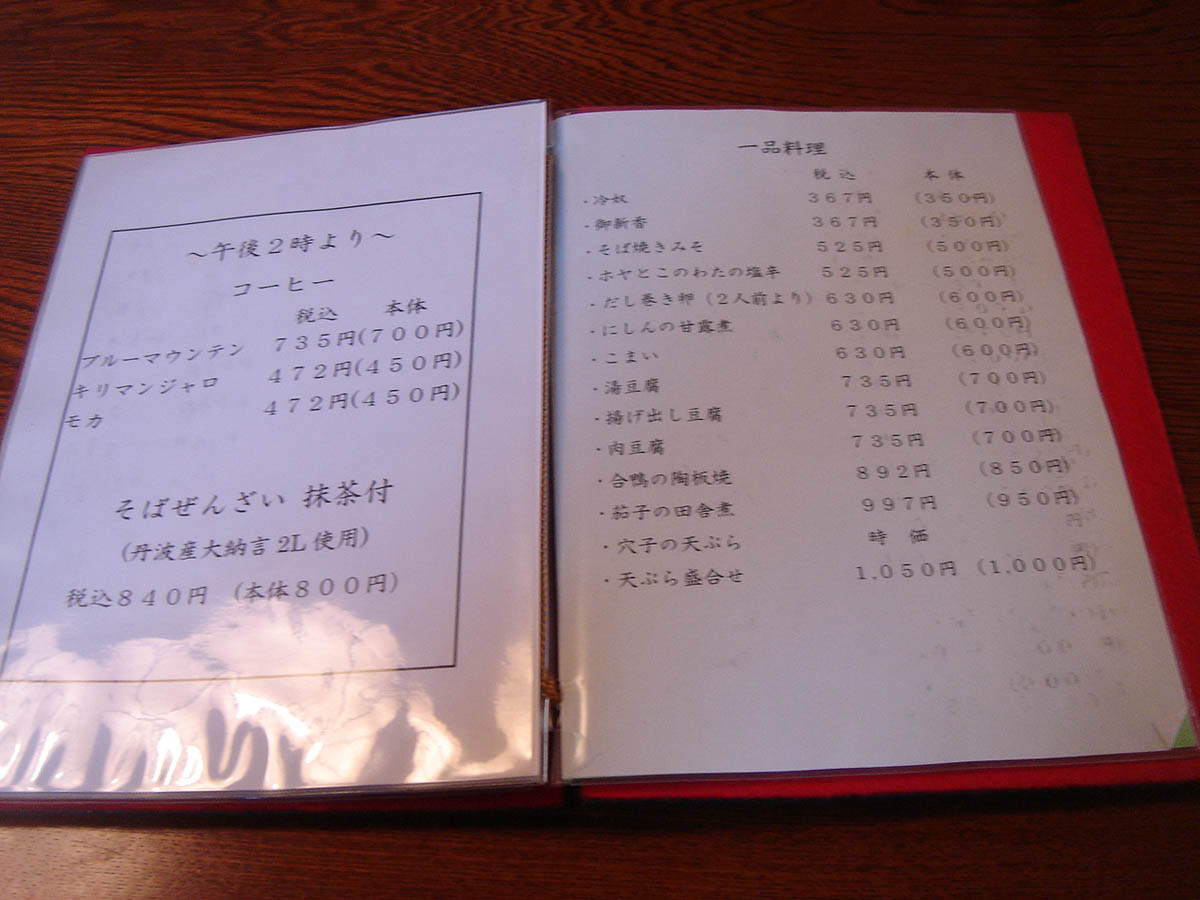 ～午後２時より～
コーヒー
税込 本体
ブルーマウンテン ７３５円(７００円)
キリマンジャロ ４７２円(４５０円)
モカ ４７２円(４５０円)
そばぜんざい 抹茶付
(丹波産大納言 2L 使用)
税込８４０円 (本体８００円)
一品料理
税込 本体
・冷奴 ３６７円 (３５０円)
・御新香 ３６７円 (３５０円)
・そば焼きみそ ５２５円 (５００円)
・ホヤとこのわたの塩辛 ５２５円 (５００円)
・だし巻き卵（２人前より） ６３０円 (６００円)
・にしんの甘露煮 ６３０円 (６００円)
・こまい ６３０円 (６００円)
・湯豆腐 ７３５円 (７００円)
・揚げ出し豆腐 ７３５円 (７００円)
・肉豆腐 ７３５円 (７００円)
・合鴨の陶板焼 ８９２円 (８５０円)
・茄子の田舎煮 ９９７円 (９５０円)
・穴子の天ぷら 時価
・天ぷら盛合せ １,０５０円 (１,０００円)